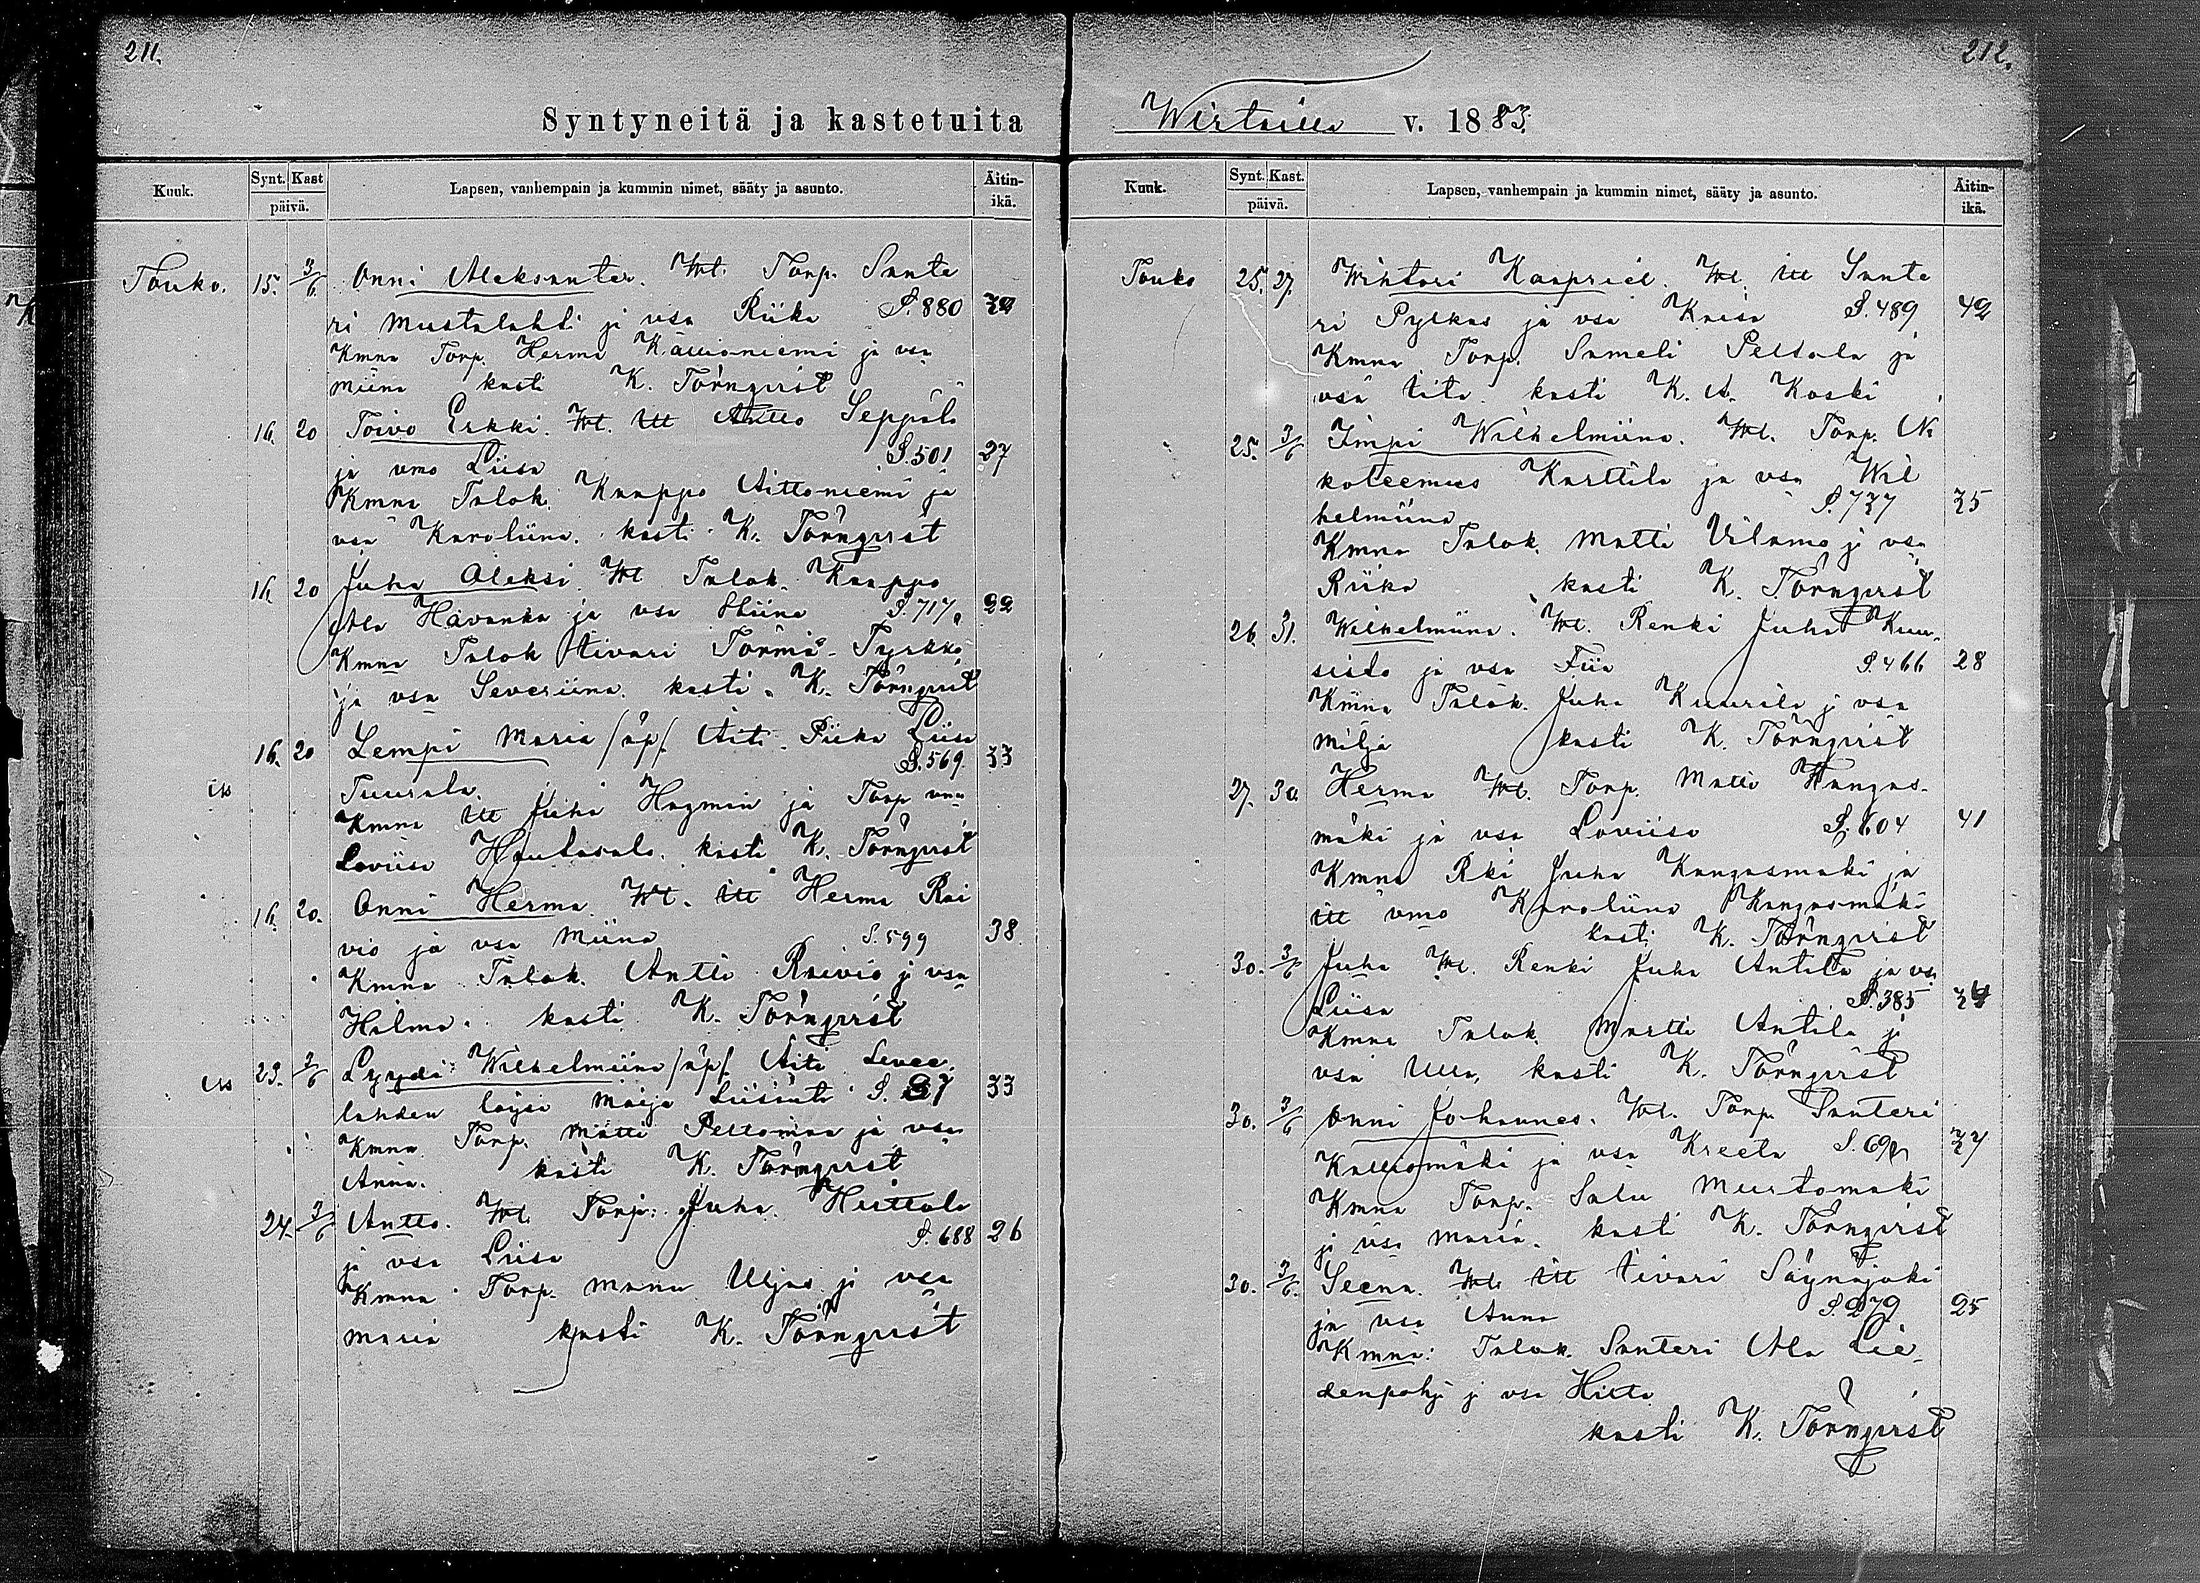 211.
Syntyneitä ja kastetuita
Kuuk. Synt. Kast päivä. Lapsen, vanhempain ja kummin nimet, sääty ja asunto. Äitin-ikä.
Touko. 15. 3/6 Onni Aleksanter. Torp. Sante
ri Mustalahti ja vsa Riika S. 880
Kmna Torp. Herma Kallioniemi ja vsa
Miina kasti K. Törnqvist
16. 20 Toivo Erkki. Itl Antto Seppälä
ja vmo Liisa S. 501 27
Kmna Talok. Kaappo Aittoniemi ja
vsa Karoliina. kasti K. Törnqvist
16. 20 Juha Aleksi Talok Kaappo
Ala Havanka ja vsa Stiina S. 717. 22
Kmna Talok Iivari Törmä Tyrkkö
ja vsa Severiina. kasti K. Törnqvist
16. 20 Lempi Maria /äp/. Äiti Riika Liisa
Tuurala. S. 569. 33
Kmna Itl Juha Hagman ja Torp vmo
Loviisa Hautasalo. kasti K. Törnqvist
16. 20. Onni Herma Itl Herma Rai
vio ja vsa Miina S. 599 38
Kmna Talok. Antti Raivio ja vsa
Hilma. kasti K. Törnqvist
23. 3/6 Lyydi Wilhelmiina /äp/. Äiti Levee.
lahden loysi Maija Liisinti S. 33
Kmna Torp. Matti Peltomaa ja vsa
Anna. kasti K. Törnqvist
24. 3/6 Antto. Torp. Juha Huttola
ja vsa Liisa S. 688 26
Kmna Torp. Manu Uljas ja vsa
Maria kasti K. Törnqvist
212.
Wirtailla v. 1883.
Kuuk. Synt. Kast. päivä. Lapsen, vanhempain ja kummin nimet, sääty ja asunto. Äitin-ikä.
Touko 25. 27. Wihtori Kaapriel. Itl Sante
ri Pylkas ja vsa Kaisa S. 489 42
Kmna Torp. Sameli Peltola ja
vsa kasti K. A. Koski
25. 3/6 Impi Wilhelmiina. Torp. Ni
koteemus Karttila ja vsa Wil
helmiina S. 737 35
Kmna Talok. Matti Vilamo ja vsa
Riika kasti K. Törnqvist
26. 31. Wilhelmiina. Renki Juha Kuu-
sisto ja vsa Fiia S. 466 28
Kmna Talok. Juha Kuurila ja vsa
Milja kasti K. Törnqvist
27. 30. Herma Torp. Matti Kangas-
mäki ja vsa Loviisa S. 604 41
Kmna Rki Juha Kangasmäki ja
Itl vmo Karoliina Kangasmäki
kasti K. Törnqvist
30. 3/6 Juha Renki Juha Antila ja vsa
Liisa S. 385
Kmna Talok. Martti Antila ja
vsa Ulla, kasti K. Törnqvist
30. 3/6 Onni Johannes. Torp. Santeri
Kalliomäki ja vsa Kreeta 37
Kmna Torp. Salu Mustomäki
ja vsa Maria. kasti K. Törnqvist
30. 3/6. Seena. Itl Iivari Säynäjoki
ja vsa Anna S. 279 25
Kmna: Talok. Santeri Ala Lie-
denpohja ja vsa Hilta
kasti K. Törnqvist